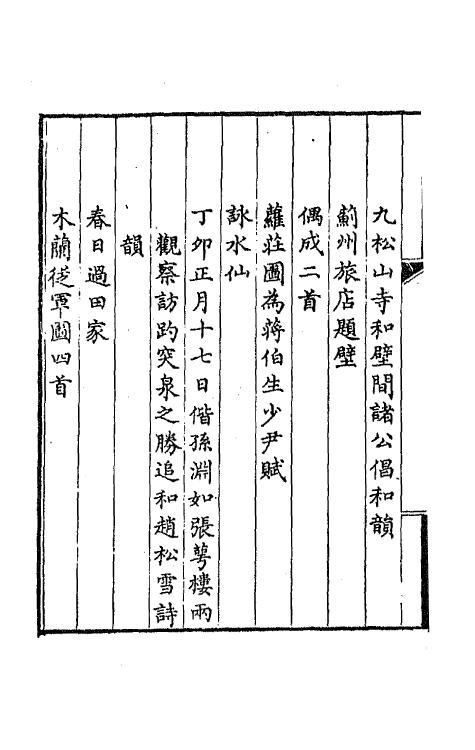 九松山寺和壁間諸公倡和韻
薊州旅店題壁
偶成二首
蘿莊圖為蔣伯生少尹賦
詠水仙
丁卯正月十七日偕孫淵如張蕚樓兩
觀察訪趵突泉之勝追和趙松雪詩
韻
春日過田家
木蘭從軍圖四首